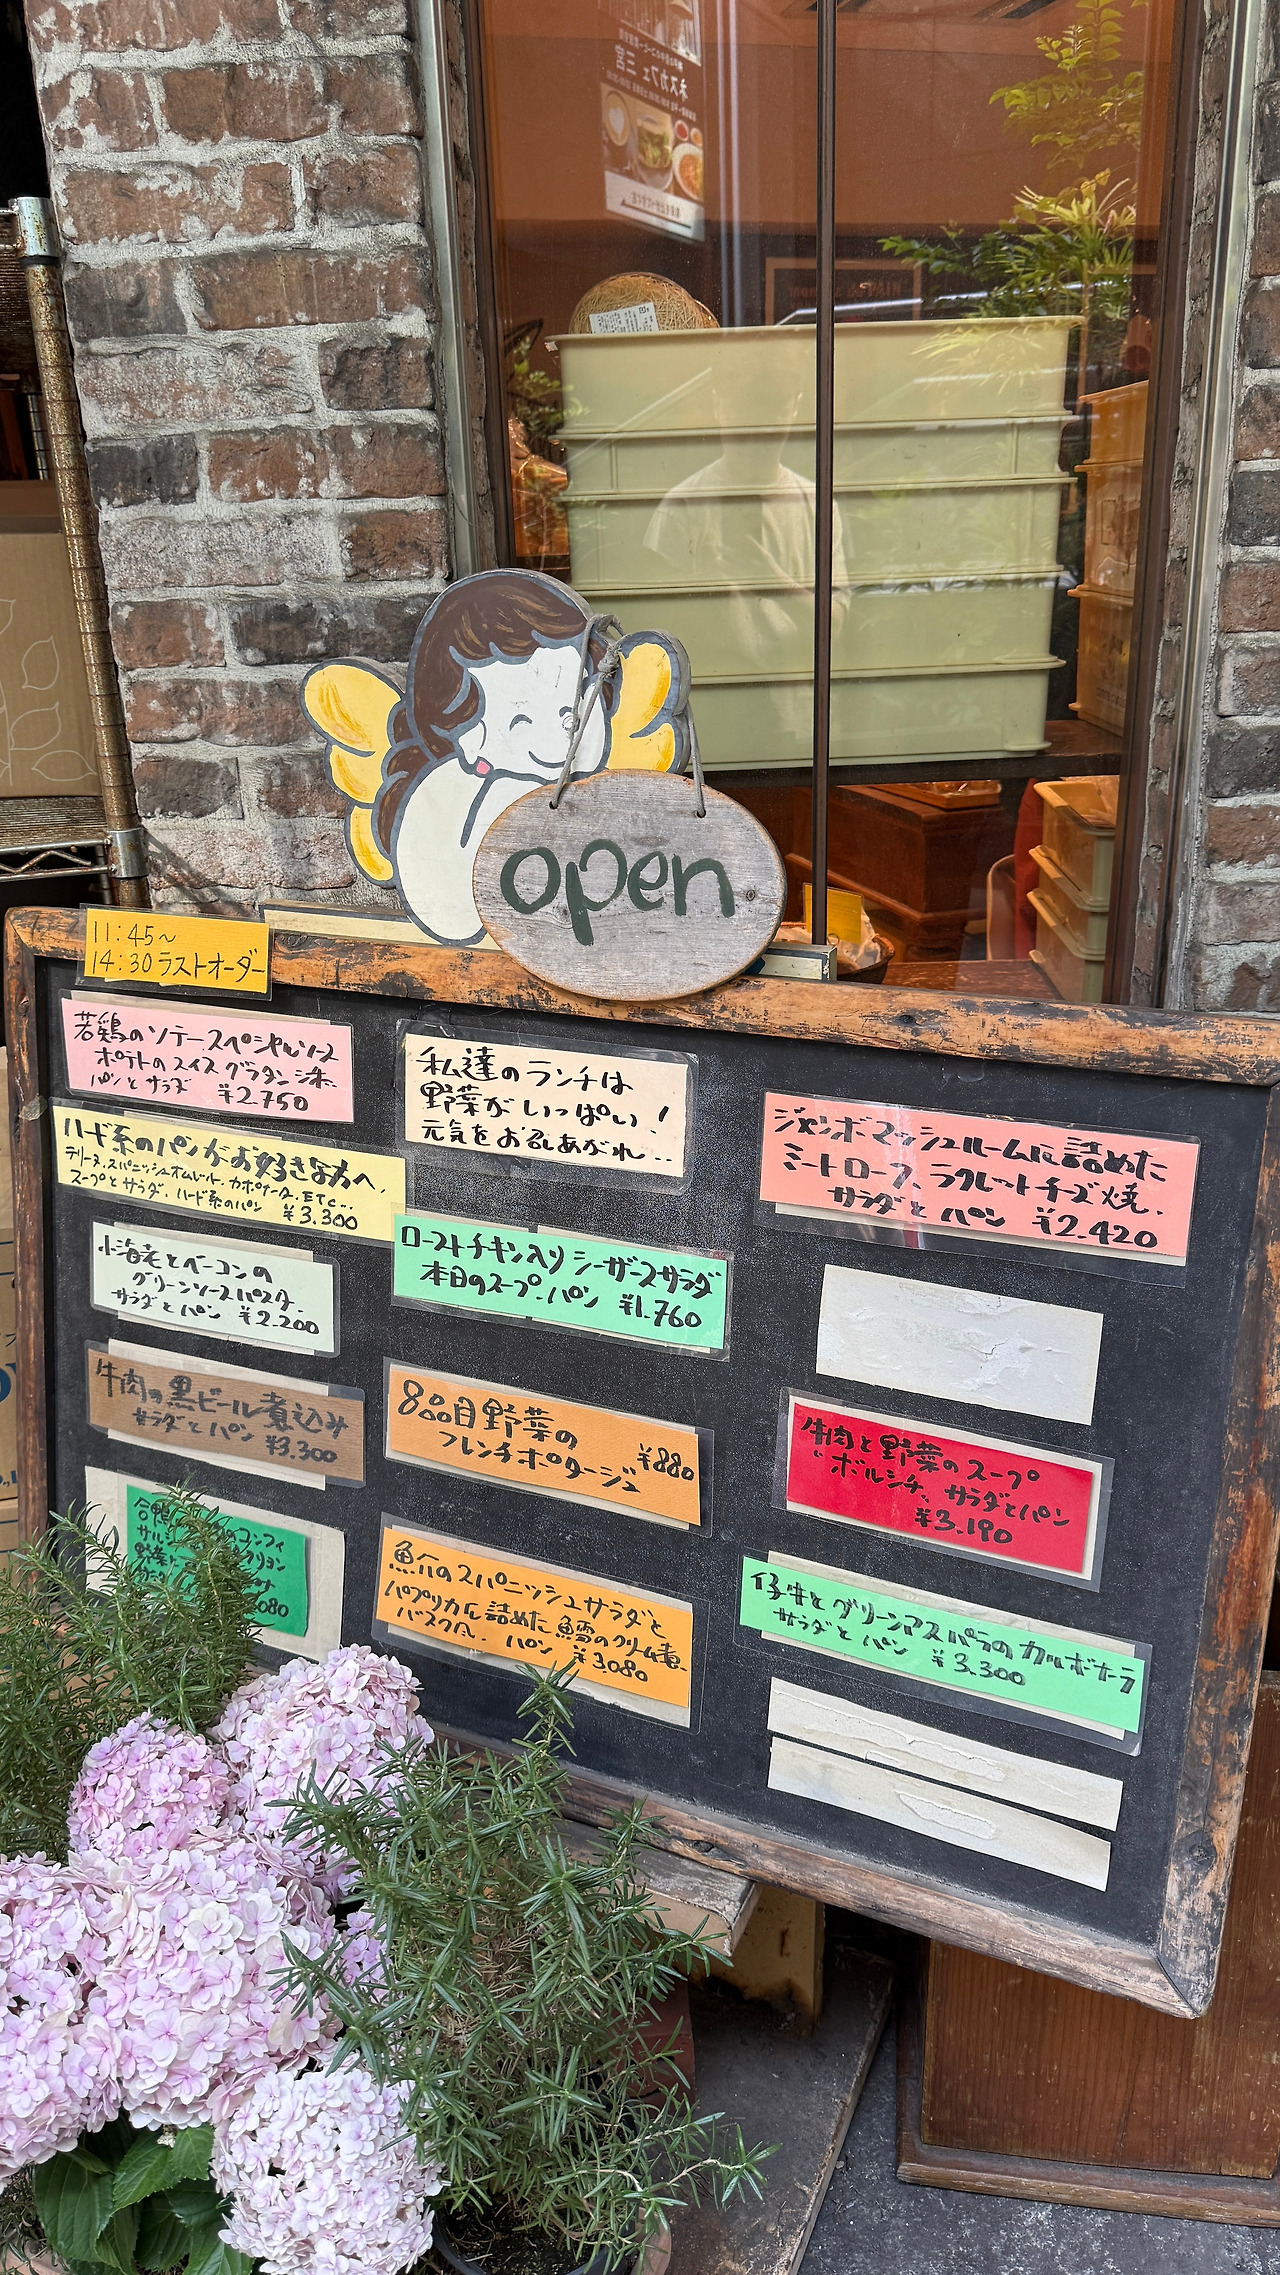 ネスカフェ 三宮
open
11:45〜
14:30 ラストオーダー
若鶏のソテースペシャルソース
ポテトのスイスグラタン添え
パンとサラダ ¥2.750
ハード系のパンがお好きな方へ、
テリーヌ、スパニッシュオムレット、カポナータ、ETC...
スープとサラダ、ハード系のパン ¥3.300
小海老とベーコンの
グリーンソースパスタ、
サラダとパン ¥2.200
牛肉の黒ビール煮込み
サラダとパン ¥3.300
合鴨 のコンフィ
野菜と
080
私達のランチは
野菜がいっぱい!
元気をお召しあがれ...
ローストチキン入りシーザースサラダ
本日のスープ、パン ¥1.760
8品目野菜の
フレンチポタージュ
¥880
魚介のスパニッシュサラダと
パプリカに詰めた鱈のクリーム煮
バスク風、パン ¥3.080
ジャンボマッシュルームに詰めた
ミートローフ、ラクレットチーズ焼、
サラダとパン ¥2.420
牛肉と野菜のスープ
"ボルシチ" サラダとパン
¥3.190
仔牛とグリーンアスパラのカルボナーラ
サラダとパン ¥3.300